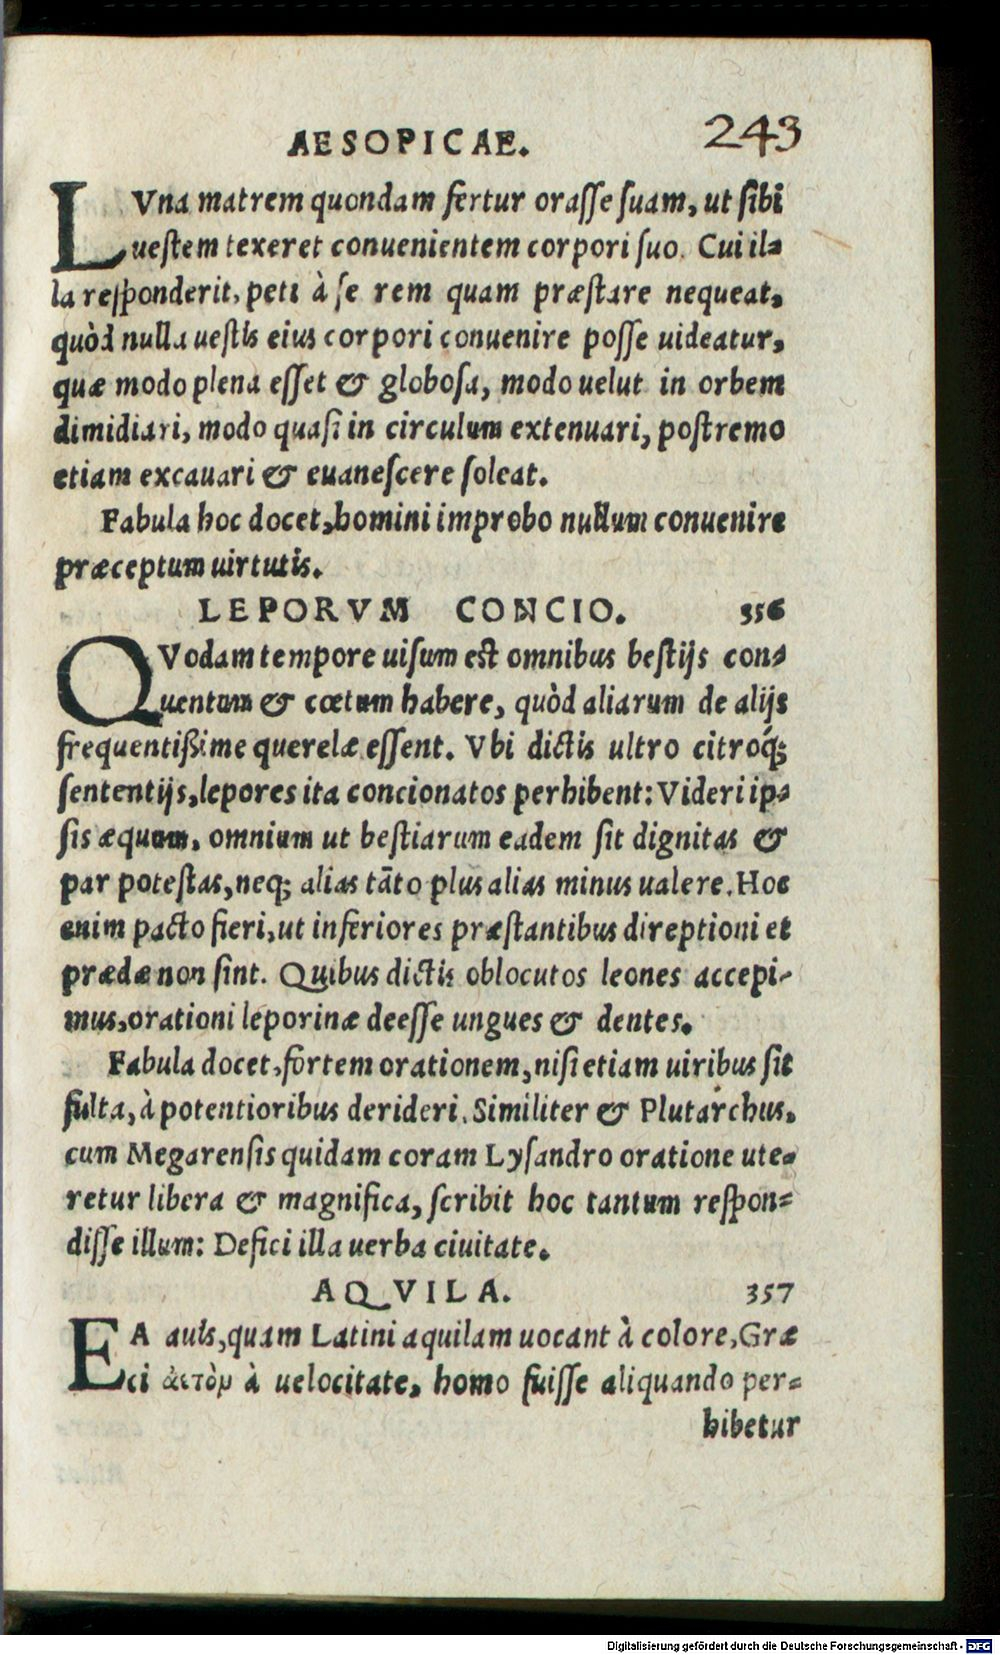 AESOPICAE. 243
LVna matrem quondam fertur orasse suam, ut sibi
uestem texeret conuenientem corpori suo. Cui il-
la responderit, peti à se rem quam præstare nequeat,
quòd nulla uestis eius corpori conuenire posse uideatur,
quæ modo plena esset & globosa, modo uelut in orbem
dimidiari, modo quasi in circulum extenuari, postremo
etiam excauari & euanescere soleat.
Fabula hoc docet, homini improbo nullum conuenire
præceptum uirtutis.
LEPORVM CONCIO. 356
QVodam tempore uisum est omnibus bestijs con-
uentum & cœtum habere, quòd aliarum de alijs
frequentißime querelæ essent. Vbi dictis ultro citroq́;
sententijs, lepores ita concionatos perhibent: Videri ip-
sis æquum, omnium ut bestiarum eadem sit dignitas &
par potestas, neq; alias tāto plus alias minus ualere. Hoc
enim pacto fieri, ut inferiores præstantibus direptioni et
prædæ non sint. Quibus dictis oblocutos leones accepi-
mus, orationi leporinæ deesse ungues & dentes.
Fabula docet, fortem orationem, nisi etiam uiribus sit
fulta, à potentioribus derideri. Similiter & Plutarchus,
cum Megarensis quidam coram Lysandro oratione ute-
retur libera & magnifica, scribit hoc tantum respon-
disse illum: Defici illa uerba ciuitate.
AQVILA. 357
EA auis, quam Latini aquilam uocant à colore, Græ
ci ἀετὸν à uelocitate, homo fuisse aliquando per-
hibetur
Digitalisierung gefördert durch die Deutsche Forschungsgemeinschaft - DFG